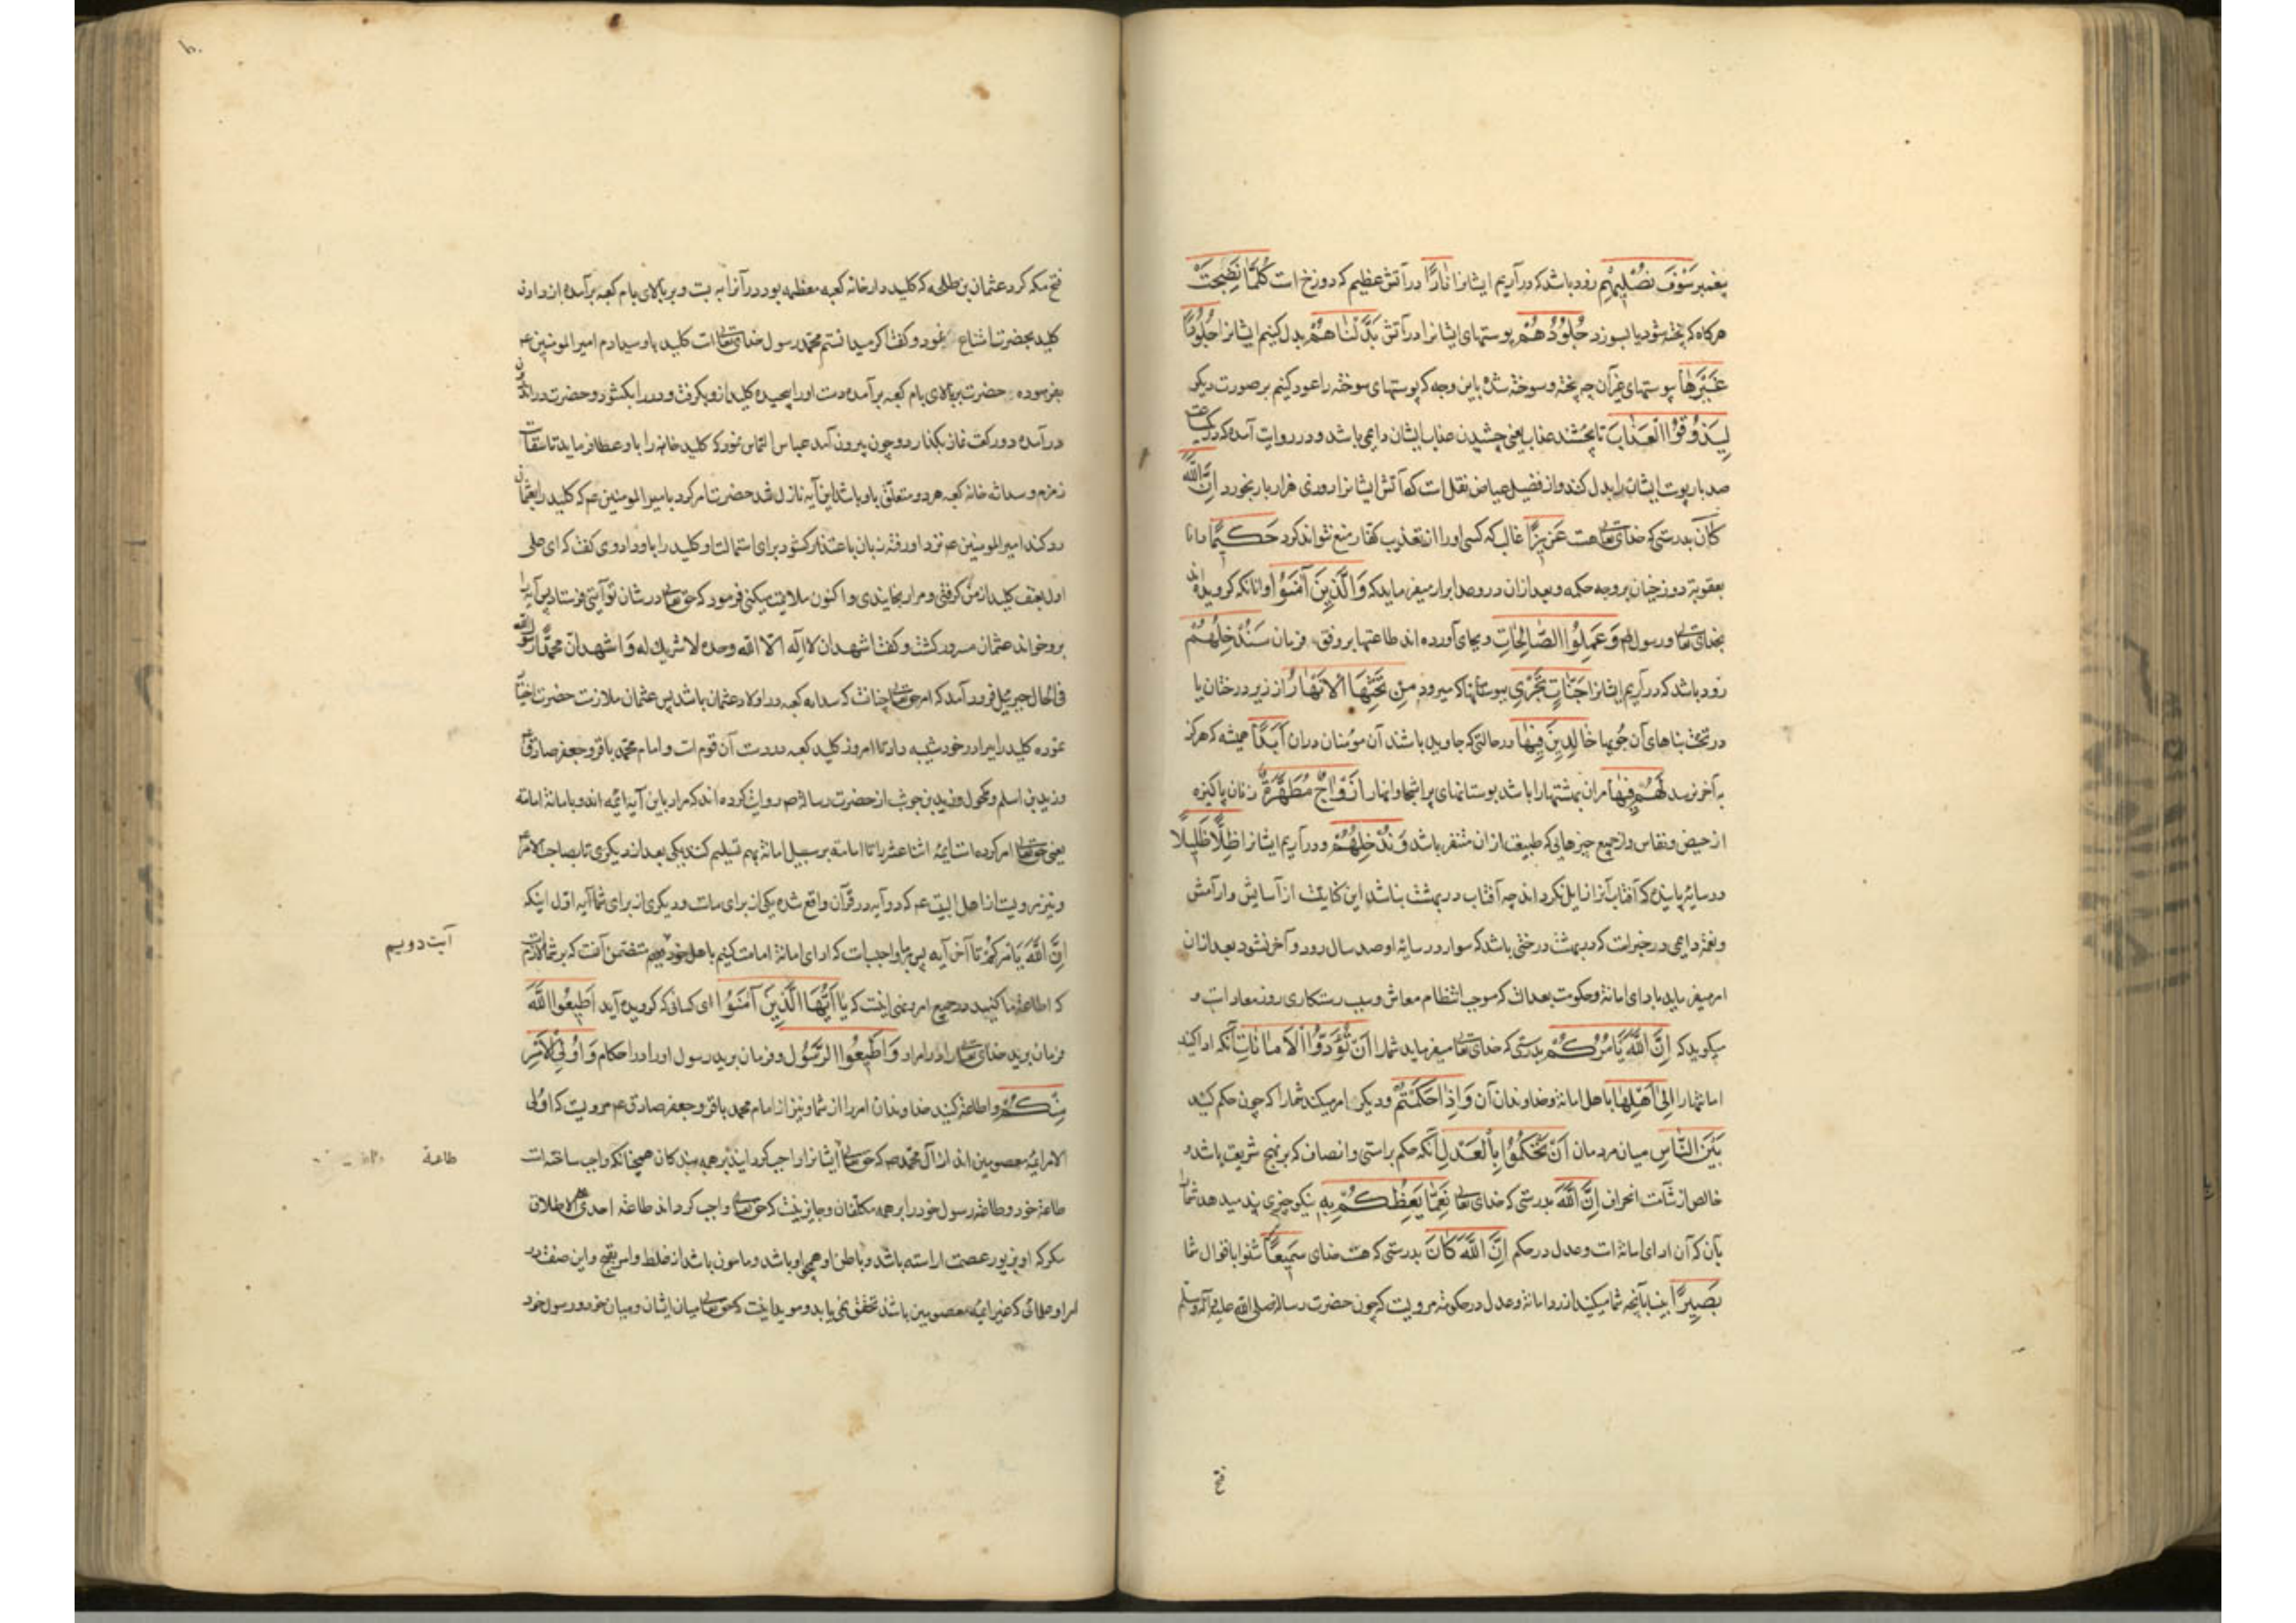 پیغمبر سَوْفَ نُصْلِيهِمْ زود باشد که درآریم ایشانرا نَارًا در آتش عظیم که دوزخ است كُلَّمَا نَضِجَتْ
هرکاه که پخته شود یا بسوزد جُلُودُهُمْ پوستهای ایشانرا در آتش بَدَّلْنَاهُمْ بدل کنیم ایشانرا جُلُودًا
غَيْرَهَا پوستهای غیر آن چه پخته و سوخته شده باین وجه که پوستهای سوخته را عود کنیم بر صورت دیکر
لِيَذُوقُوا الْعَذَابَ تا بچشند عذاب یعنی چشیدن عذاب ایشان دایمی باشد و در روایت آمده که در یکساعت
صد بار پوست ایشانرا بدل کنند و از فضیل عیاض نقلست که آتش ایشانرا روزی هزار بار بخورد إِنَّ اللَّهَ
كَانَ بدرستی که خدای تعالی هست عَزِيزًا غالب که کسی او را از تعذیب کفار منع نتواند کرد حَكِيمًا دانا
بعقوبة دوزخیان بر وجه حکمه و بعد ازان در وعد ابرار میفرماید که وَالَّذِينَ آمَنُوا وانانکه کرویده اند
بخدای تعالی و رسول وَعَمِلُوا الصَّالِحَاتِ و بجای آورده اند طاعتها بر وفق فرمان سَنُدْخِلُهُمْ
زود باشد که درآریم ایشانرا جَنَّاتٍ تَجْرِي ببوستانها که میرود مِنْ تَحْتِهَا الْأَنْهَارُ از زیر درختان یا
در تحت بناهای آن جویها خَالِدِينَ فِيهَا در حالتی که جاوید باشند آن مومنان دران أَبَدًا همیشه که هرکز
به آخر نرسد لَهُمْ فِيهَا مران بهشتها را باشد بوستانهای پر اشجار و انهار أَزْوَاجٌ مُطَهَّرَةٌ زنان پاکیزه
از حیض و نفاس و از جمیع چیزهایی که طبیعت ازان متنفر باشد وَنُدْخِلُهُمْ و درآریم ایشانرا ظِلًّا ظَلِيلًا
در سایه پاینده که آفتاب آنرا زایل نکرداند چه آفتاب در بهشت نباشد این کنایت از آسایش و آرامش
و نعمة دایمی در خبرات که در بهشت درختی باشد که سوار در سایه او صد سال رود و آخر نشود بعد ازان
امر میفرماید بادای امانة و حکومت بعدالت که موجب انتظام معاش و سبب رستکاری روز معادات و
میکوید که إِنَّ اللَّهَ يَأْمُرُكُمْ بدرستی که خدای تعالی میفرماید شما را أَنْ تُؤَدُّوا الْأَمَانَاتِ آنکه ادا کنید
امانتها را إِلَى أَهْلِهَا باهل امانة و خداوندان آن وَإِذَا حَكَمْتُمْ و دیکر امر میکند شما را که چون حکم کنید
بَيْنَ النَّاسِ میان مردمان أَنْ تَحْكُمُوا بِالْعَدْلِ آنکه حکم براستی و انصاف که بر نهج شریعت باشد و
خالص از شآئبه انحراف إِنَّ اللَّهَ بدرستی که خدای تعالی نِعِمَّا يَعِظُكُمْ بِهِ نیکو چیزی پند میدهد شما را
بآن که آن ادای امانة است و عدل در حکم إِنَّ اللَّهَ كَانَ بدرستی که هست خدای سَمِيعًا شنوا باقوال شما
بَصِيرًا بینا بآنچه شما میکنید از رد امانة و عدل در حکومة مرویست که چون حضرت رسالة صلی الله علیه و آله وسلم
فتح
فتح مکه کرد عثمان بن طلحه که کلید دار خانه کعبه معظمه بود در آنرا به بست و بر بالای بام کعبه برآمده از دادن
کلید بحضرت امتناع نمود و کفت اکر میدانستم محمد رسول خدای تعالی است کلید باو میدادم امیرالمومنین ع
بفرموده حضرت بر بالای بام کعبه برآمده دست او را پیچیده کلید ازو بکرفت و در را بکشود و حضرت در اندرون
درآمده دو رکعت نماز بکذارد و چون بیرون آمد عباس التماس نمود که کلید خانه را باو عطا فرماید تا سقایت
زمزم و سدانه خانه کعبه هر دو متعلق باو باشد این آیه نازل شد حضرت امر کرد بامیرالمومنین ع که کلید را بعثمان
رد کند امیرالمومنین ع نزد او رفته زبان باعتذار کشود برای استمالت او کلید را باو داد وی کفت که ای علی
اول بعنف کلید از من کرفتی و مرا رنجانیدی و اکنون ملایمت میکنی فرمود که حق تعالی در شان تو آیتی فرستاد پس آیه را
برو خواند عثمان مسرور کشت و کفت اشهد ان لا اله الا الله وحده لا شریک له و اشهد ان محمدا رسول الله
فی الحال جبرئیل فرود آمد که امر حق تعالی چنانست که سدانه کعبه در اولاد عثمان باشد پس عثمان ملازمت حضرت اختیار
نموده کلید را ببرادر خود شیبه داد تا امروز کلید کعبه در دست آن قوم است و امام محمد باقر و جعفر صادق ع
و زید بن اسلم و مکحول و زید بن حوشب از حضرت رسالة ص روایت کرده اند که مراد باین آیه ائمه اند و بامانة امامة
یعنی حق تعالی امر کرده است ایمه اثنا عشر را تا امامة بر سبیل امانة بهم تسلیم کنند یکی بعد از دیکری تا بصاحب الامر
و نیز مرویست از اهل البیت ع که دو آیه در قرآن واقع شده یکی از برای ماست و دیکری از برای شما آیه اول اینکه
إِنَّ اللَّهَ يَأْمُرُكُمْ تا آخر آیه پس بر ما واجبست که ادای امانة امامت کنیم باهل خود متضمن آنست که بر شما لازمست
آیت دویم
که اطاعة ما کنید در جمیع امر و نهی اینست که يَا أَيُّهَا الَّذِينَ آمَنُوا ای کسانی که کرویده آید أَطِيعُوا اللَّهَ
فرمان برید خدای تعالی را در امر او وَأَطِيعُوا الرَّسُولَ و فرمان برید رسول او را در احکام وَأُولِي الْأَمْرِ
مِنْكُمْ و اطاعة کنید خداوندان امر را از شما و نیز از امام محمد باقر و جعفر صادق ع مرویست که اولی
الامر ائمه معصومین اند از آل محمد ص که حق تعالی ایشانرا واجب کردانید بر همه بندکان همچنانکه واجب ساخته است
طاعة
طاعة خود و طاعة رسول خود را بر همه مکلفان و جایز نیست که حق تعالی واجب کرداند طاعة احدی علی الاطلاق
مکر که او بزیور عصمت اراسته باشد و باطن او همچو او باشد و مامون باشد از غلط و امر بقبیح و این صفت در
امرا و علمائی که غیر ایمه معصومین باشد تحقق نمی یابد و موید اینست که حق تعالی میان ایشان و میان خود و رسول خود